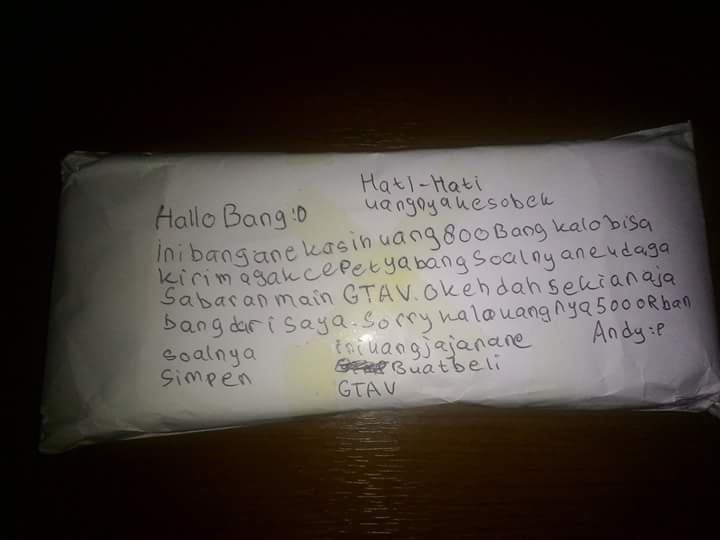 Hati-Hati
uangnya kesobek
Hallo Bang :D
ini bang ane kasih uang 800 Bang kalo bisa
kirim agak cepet ya bang soalnya ane udaga
Sabaran main GTAV. Okeh dah sekian aja
bang dari saya. Sorry kalo uangnya 5000Rban
soalnya ini uang jajan ane
Simpen Buat beli
GTAV
Andy :p